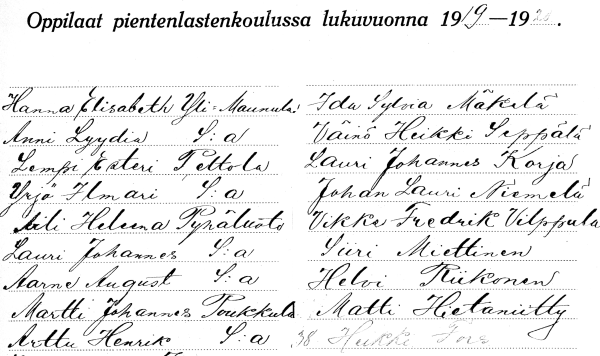 Oppilaat pientenlastenkoulussa lukuvuonna 1919—1920.
Hanna Elisabeth Yli-Maunula
Anni Lyydia S:a
Lempi Esteri Peltola
Yrjö Ilmari S:a
Aili Helena Pyhäluoto
Lauri Johannes S:a
Aarne August S:a
Martti Johannes Poukkula
Arttu Henrik S:a
Ida Sylvia Mäkelä
Väinö Heikki Seppälä
Lauri Johannes Korja
Johan Lauri Niemelä
Vikke Fredrik Vilppula
Siiri Miettinen
Helvi Riikonen
Matti Hietaniitty
38 Heikki